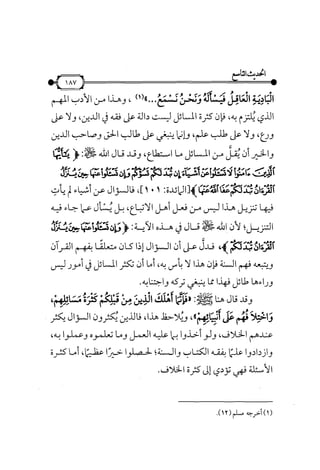 الحديث التاسع
١٨٧
الْبَادِيَةِ الْعَاقِلُ فَيَسْأَلُهُ وَنَحْنُ نَسْمَعُ...»(١)، وهذا من الأدب المهم
الذي يُلتزم به، فإن كثرة المسائل ليست دالة على فقه في الدين، ولا على
ورع، ولا على طلب علم، وإنما ينبغي على طالب الحق وصاحب الدين
والخير أن يُقلَّ من المسائل ما استطاع، وقد قال الله ﷻ: ﴿ يَٰٓأَيُّهَا
ٱلَّذِينَ ءَامَنُوا۟ لَا تَسْـَٔلُوا۟ عَنْ أَشْيَآءَ إِن تُبْدَ لَكُمْ تَسُؤْكُمْ وَإِن تَسْـَٔلُوا۟ عَنْهَا حِينَ يُنَزَّلُ
ٱلْقُرْءَانُ تُبْدَ لَكُمْ عَفَا ٱللَّهُ عَنْهَا ﴾ [المائدة: ١٠١]، فالسؤال عن أشياء لم يأتِ
فيها تنزيل هذا ليس من فعل أهل الاتباع، بل يُسأل عما جاء فيه
التنزيل؛ لأن الله ﷻ قال في هذه الآية: ﴿ وَإِن تَسْـَٔلُوا۟ عَنْهَا حِينَ يُنَزَّلُ
ٱلْقُرْءَانُ تُبْدَ لَكُمْ ﴾، فدلَّ على أن السؤال إذا كان متعلقًا بفهم القرآن
ويتبعه فهم السنة فإن هذا لا بأس به، أما أن تكثر المسائل في أمور ليس
وراءها طائل فهذا مما ينبغي تركه واجتنابه.
وقد قال هنا ﷺ: «فَإِنَّمَا أَهْلَكَ الَّذِينَ مِنْ قَبْلِكُمْ كَثْرَةُ مَسَائِلِهِمْ،
وَاخْتِلَافُهُمْ عَلَى أَنْبِيَائِهِمْ»، ويُلاحظ هذا، فالذين يُكثرون السؤال يكثر
عندهم الخلاف، ولو أخذوا بما عليه العمل وما تعلموه وعملوا به،
وازدادوا علمًا بفقه الكتاب والسنة؛ لحصلوا خيرًا عظيمًا، أما كثرة
الأسئلة فهي تؤدي إلى كثرة الخلاف.
(١) أخرجه مسلم (١٢).